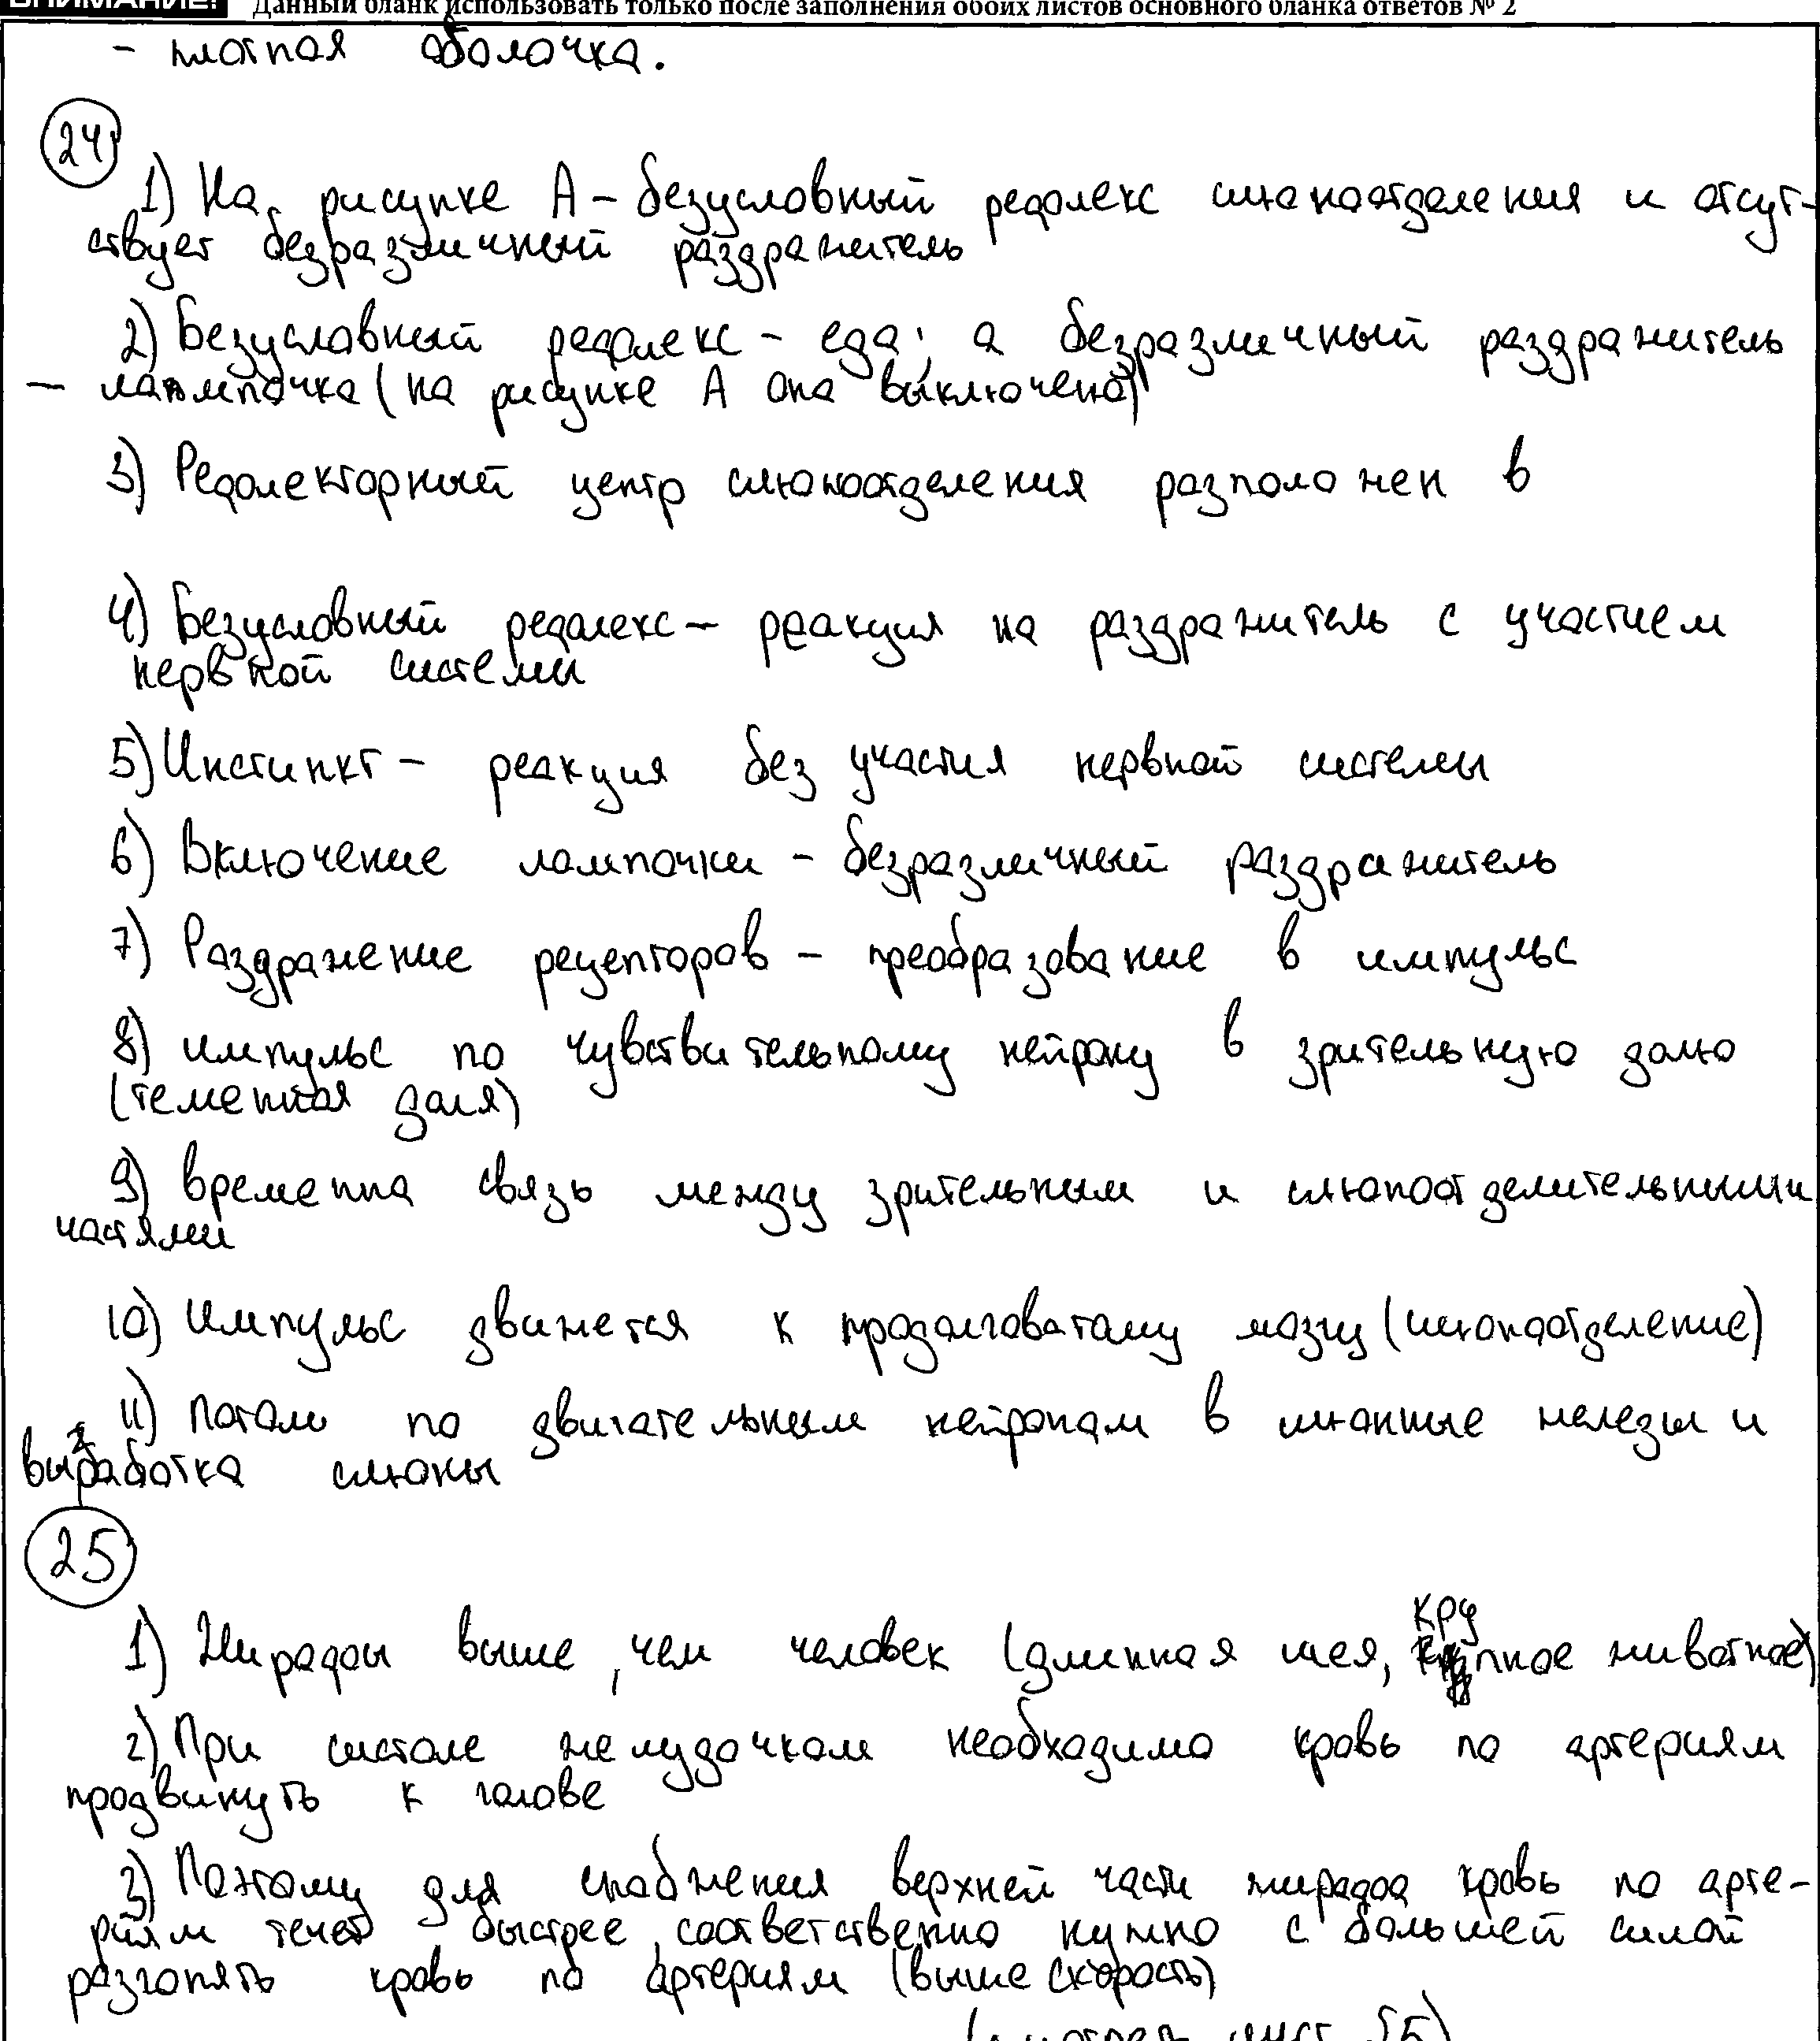 ВНИМАНИЕ! Данный бланк использовать только после заполнения обоих листов основного бланка ответов № 2
- плотная оболочка.
24
1) На рисунке А – безусловный рефлекс слюноотделения и отсут-
ствует безразличный раздражитель
2) Безусловный рефлекс – еда, а безразличный раздражитель
– лампочка (на рисунке А она выключена)
3) Рефлекторный центр слюноотделения разположен в
4) Безусловный рефлекс – реакция на раздражитель с участием
нервной системы
5) Инстинкт – реакция без участия нервной системы
6) Включение лампочки – безразличный раздражитель
7) Раздражение рецепторов – преобразование в импульс
8) импульс по чувствительному нейрону в зрительную долю
(теменная доля)
9) временна связь между зрительным и слюноотделительными
частями
10) Импульс движется к продолговатому мозгу (слюноотделение)
11) Потом по двигательным нейронам в слюнные железы и
выработка слюны
25
1) Жирафы выше, чем человек (длинная шея, крупное животное)
2) При систоле желудочком необходимо кровь по артериям
продвинуть к голове
3) Поэтому для снабжения верхней части жирафа кровь по арте-
риям течет быстрее, соответственно нужно с большей силой
разгонять кровь по артериям (выше скорость)